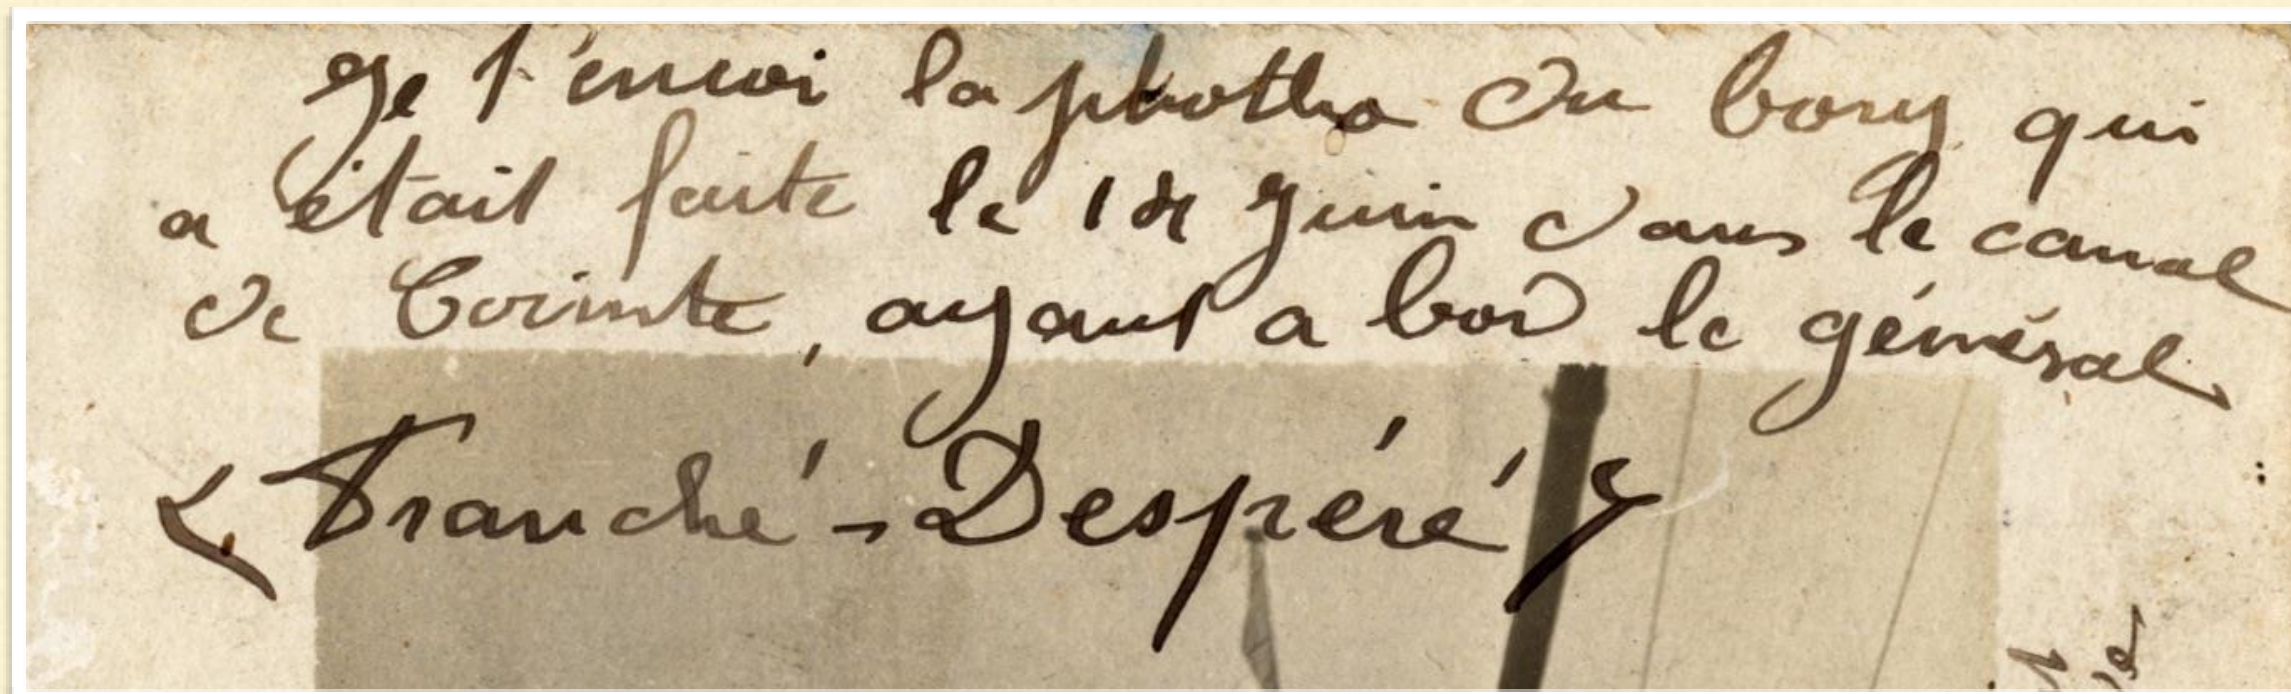 Je t'envoi la photho du bory qui
a était faite le 18 Juin dans le canal
de Corinte, ayant a bord le général
< Franché-Despéré >